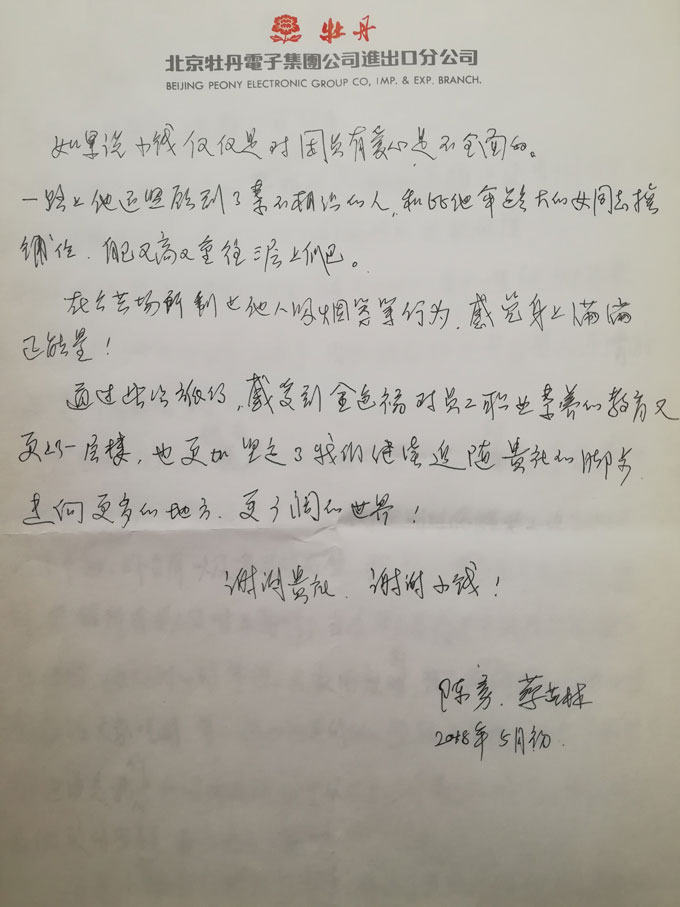 牡丹
北京牡丹電子集團公司進出口分公司
BEIJING PEONY ELECTRONIC GROUP CO, IMP. & EXP. BRANCH.
如果说小钱仅仅是对团员有爱心是不全面的。
一路上他还照顾到了素不相识的人，和比他年龄大的女同志换
铺位，自己又高又重往三层上爬。
在公共场所制止他人吸烟等等行为，感觉身上满满
正能量！
通过此次旅行，感受到金色福对员工职业素养的教育又
更上一层楼，也更加坚定了我们继续追随贵社的脚步
走向更多的地方、更广阔的世界！
谢谢贵社、谢谢小钱！
陈、蔡林
2018年5月初.